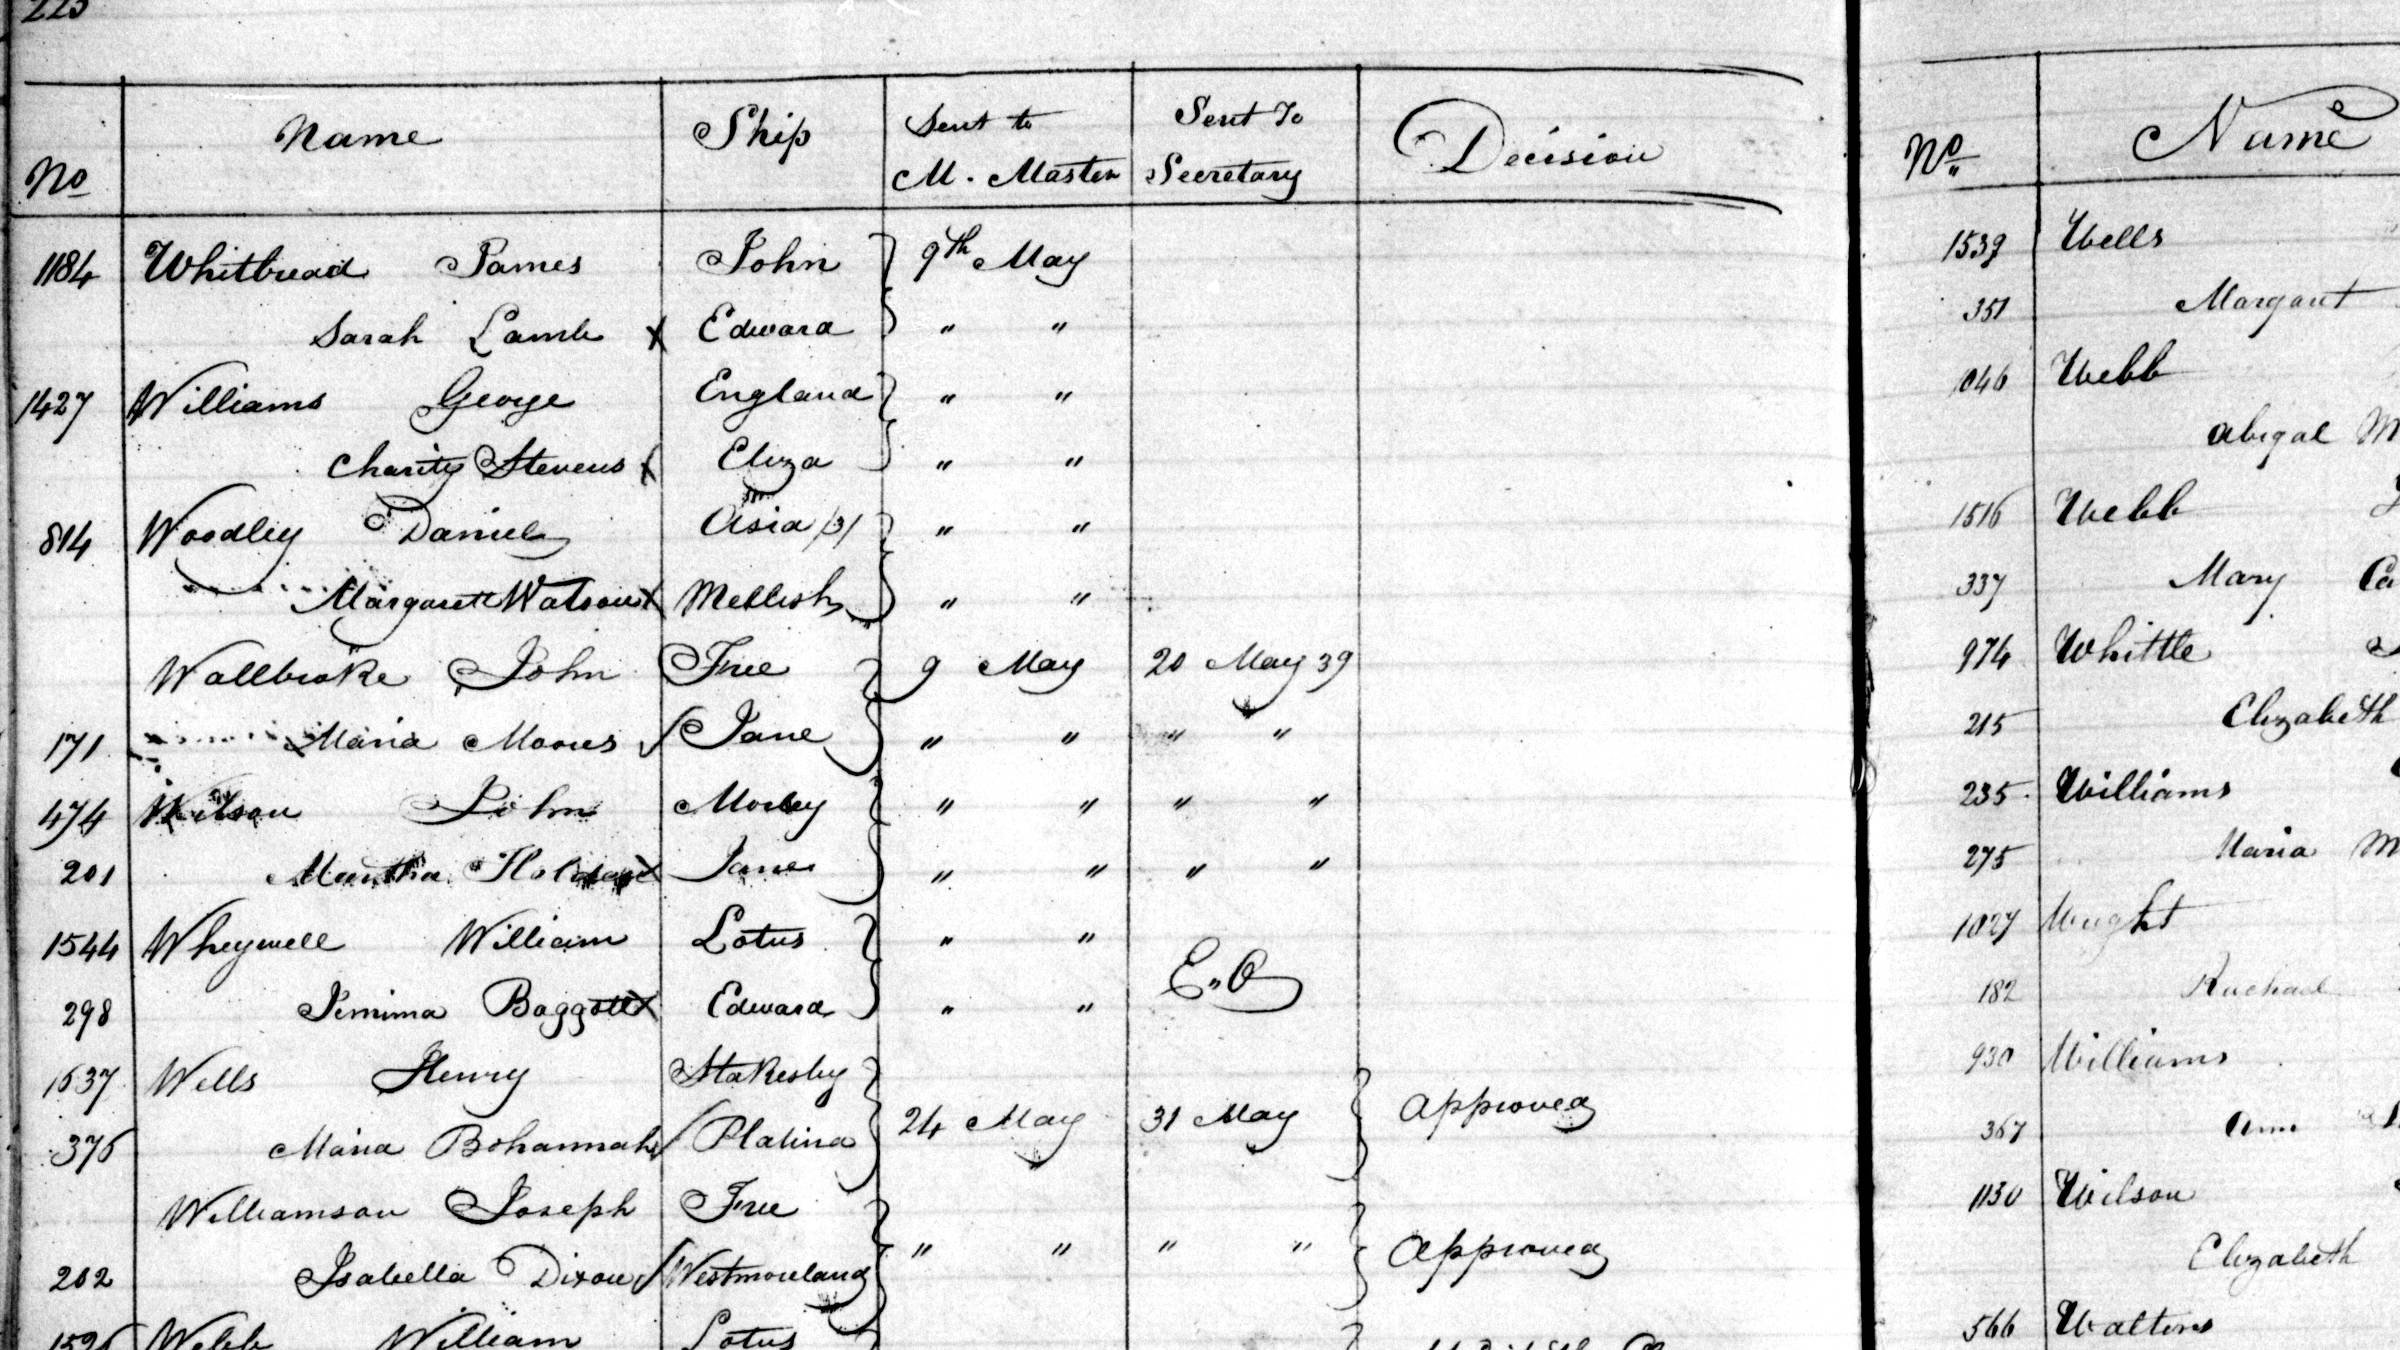 223
No Name Ship Sent to M. Master Sent To Secretary Decision
1184 Whitbread James John 9th May
Sarah Lamb x Edward " "
1427 Williams George England " "
Charity Stevens x Eliza " "
814 Woodley Daniel Asia /3/ " "
Margarett Watson x Mellish " "
Wallbroke John Free 9 May 20 May 39
171 Maria Moores / Jane " " " "
474 Wilson John Morley " " " "
201 Martha x Jane " " " "
1544 Wheywell William Lotus " " E.O
298 Jemima Baggott x Edward " "
1537 Wells Henry Stakesby
376 Maria Bohannah / Platina 24 May 31 May Approved
Williamson Joseph Free
202 Isabella Dixon / Westmoreland " " " " Approved
Webb William Lotus
No Name
1539 Wells
351 Margaret
Webb
Abigal M
1516 Webb
337 Mary Ca
974 Whittle
215 Elizabeth
235 Williams
275 Maria M
1027 Wright
182 Rachael
930 Williams
367 Ann
1130 Wilson
Elizabeth
566 Walters